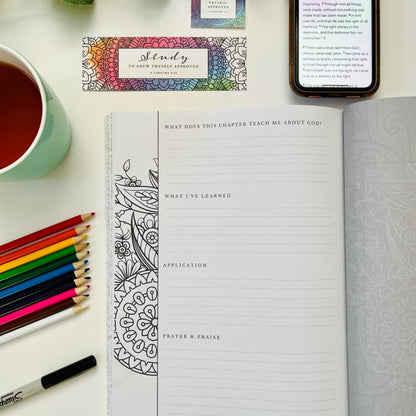 beginning. Through him all things
were made; without him nothing was
made that has been made. In
him was life, and that life was the light of all
mankind. The light shines in the
darkness, and the darkness has not
overcome it.
There was a man sent from God
whose name was John. He came as a
witness to testify concerning that light,
so that through him all might believe.
He himself was not the light; he came
only as a witness to the light.
Study
TO SHEW THYSELF APPROVED
2 TIMOTHY 2:15
WHAT DOES THIS CHAPTER TEACH ME ABOUT GOD?
WHAT I'VE LEARNED
APPLICATION
PRAYER & PRAISE